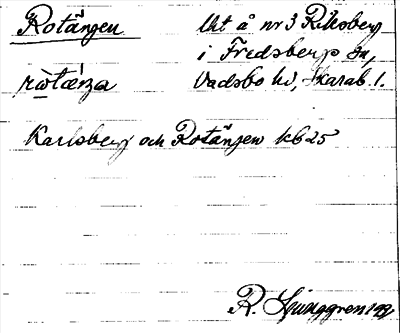 Rotängen Utt å nr 3 Riksberg
i Fredsbergs sn,
ròtæ̀ŋa Vadsbo hd, Skarab. l.
Karlsberg och Rotängen kb 25
R. Ljunggren